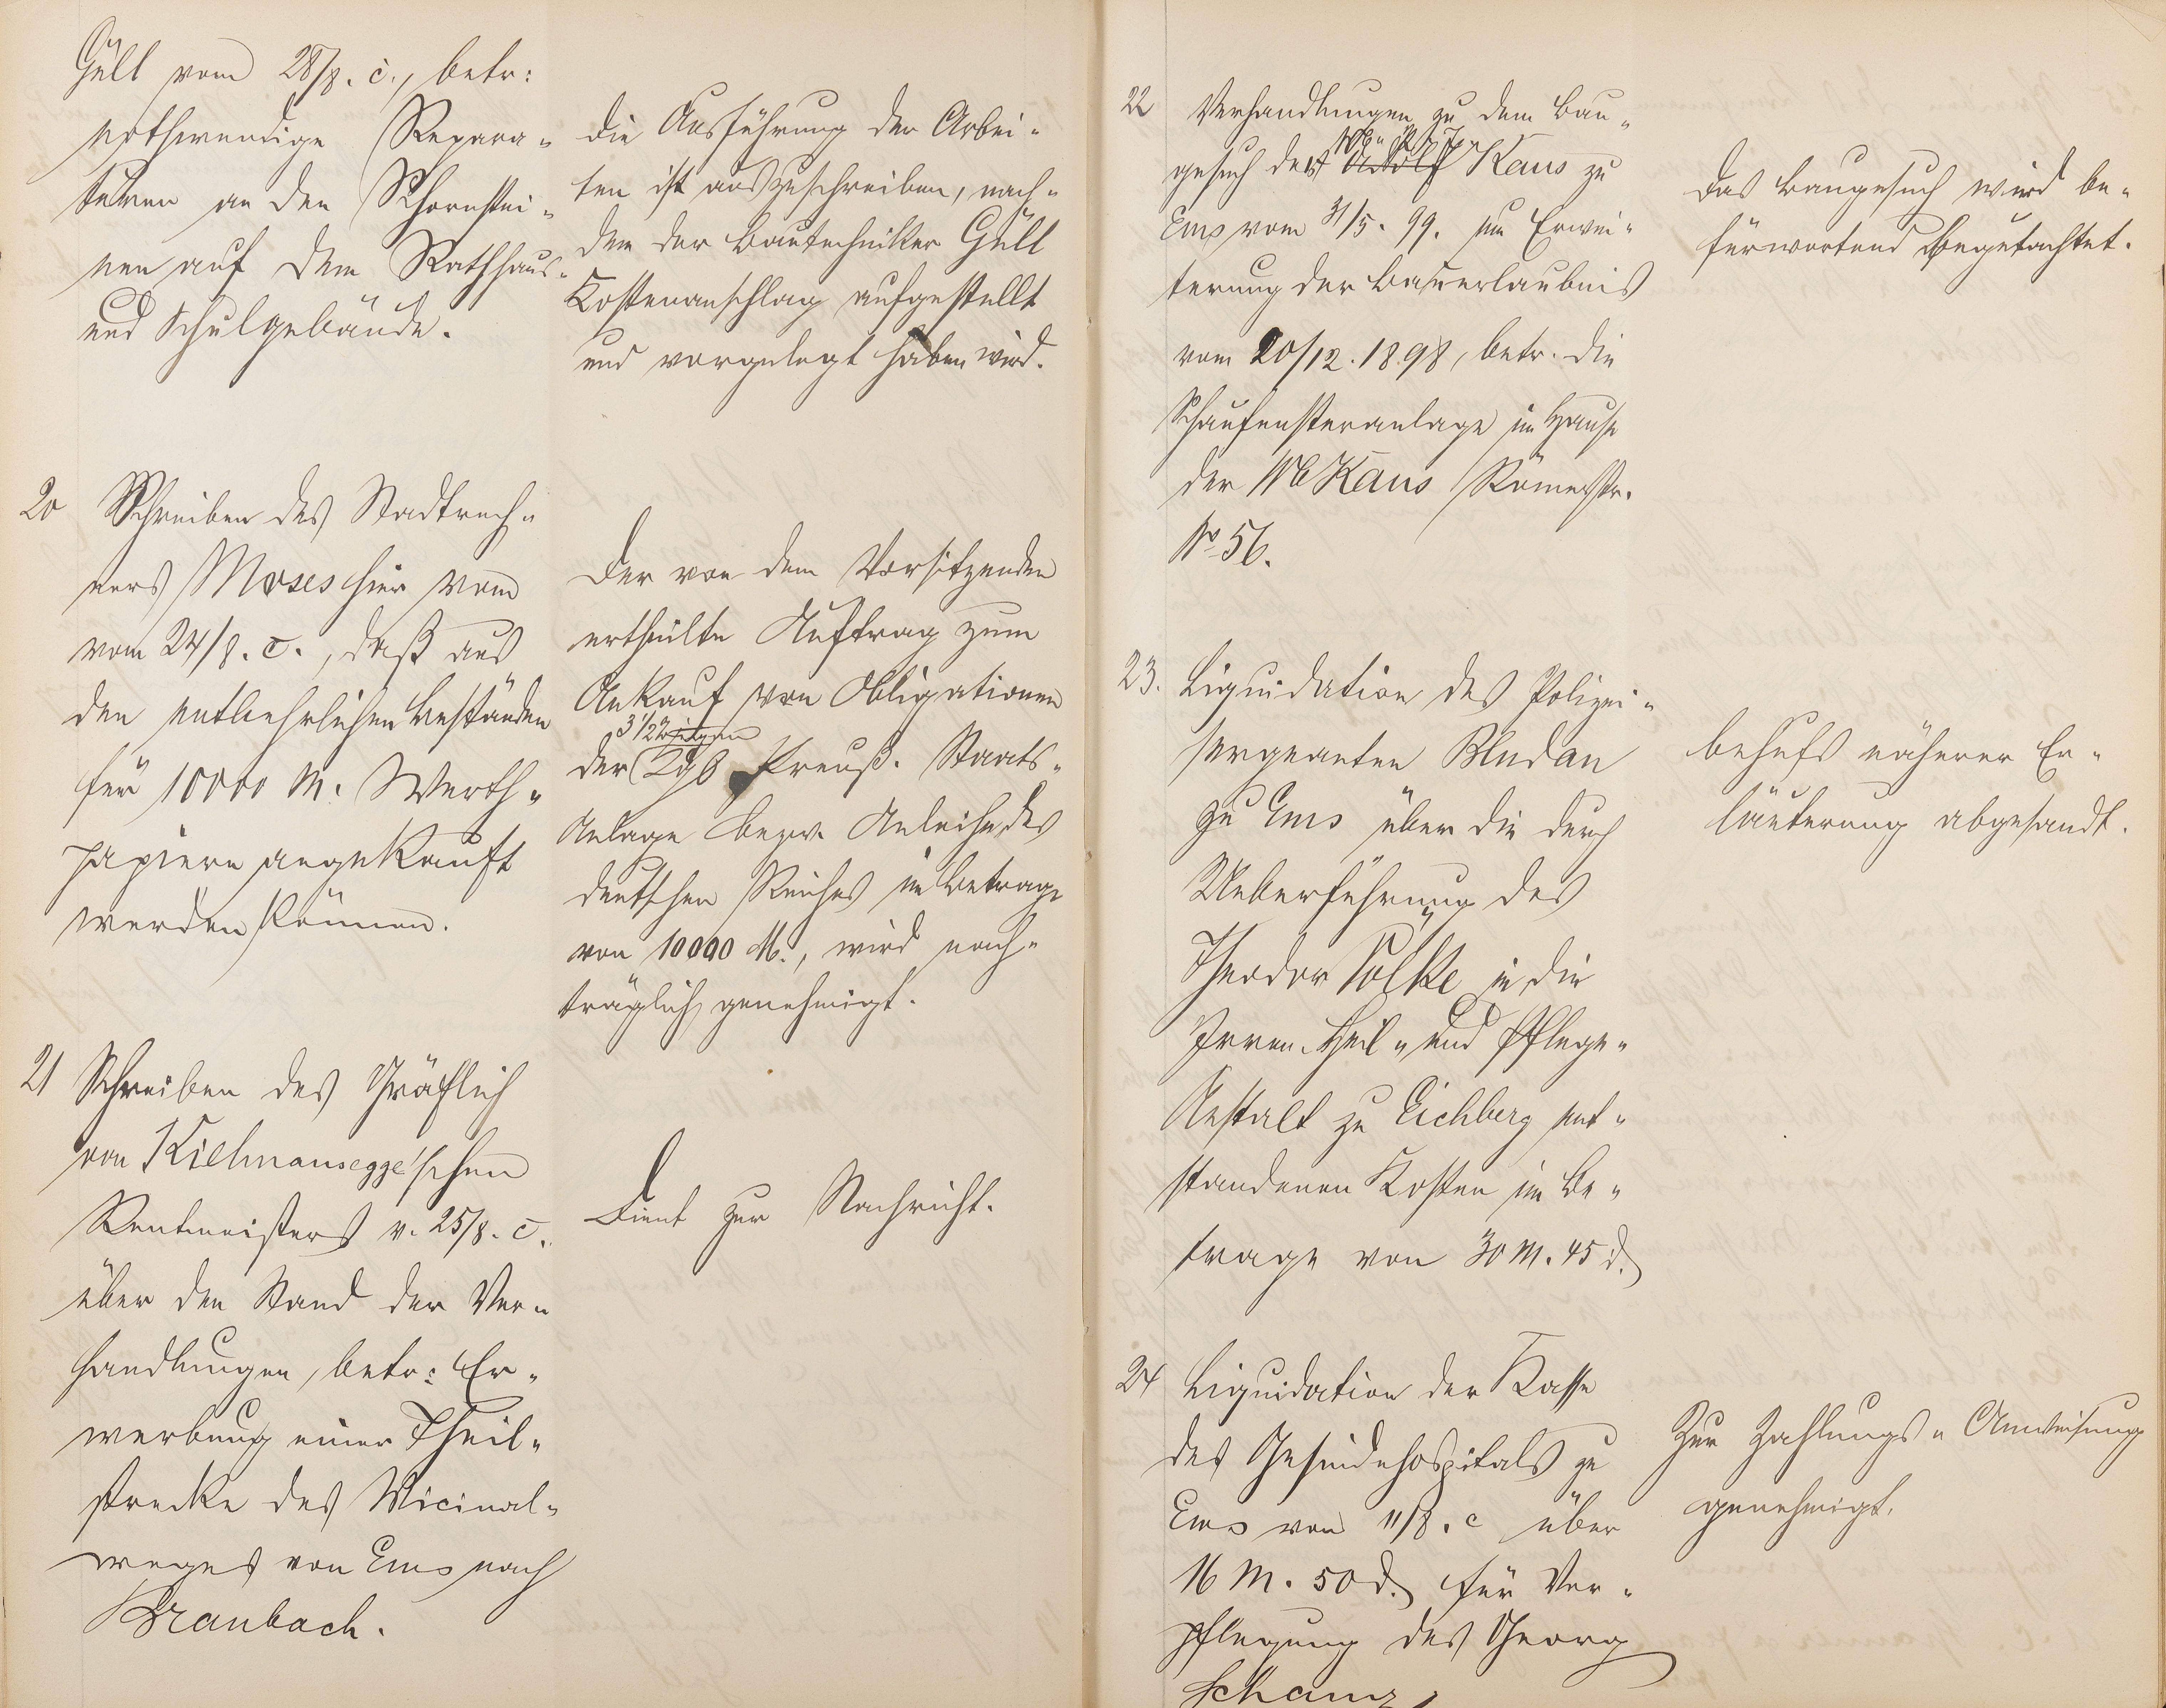 Güll vom 28/8. c., betr:
nothwendige Repara-
turen an den Schornstei-
nen auf dem Rathhaus-
und Schulgebäude.
die Ausführung der Arbei-
ten ist auszuschreiben, nach-
dem der Bautechniker Güll
Kostenanschlag aufgestellt
und vorgelegt haben wird.
20 Schreiben des Stadtrech-
ners Moses hier vom
vom 24/8. c., daß aus
den entbehrlichen Beständen
für 10000 M. Werth-
papiere angekauft
werden können.
Der von dem Vorsitzenden
ertheilte Auftrag zum
Ankauf von Obligationen
3 1/2
der Preuß. Staats-
Anlage bezw. Anleihe des
deutschen Reiches im Betrage
von 10000 M., wird nach-
träglich genehmigt.
21 Schreiben des Gräflich
von Kielmansegge'schen
Rentmeisters v. 25/8. c.
über den Stand der Ver-
handlungen, betr: Er-
werbung einer Theil-
strecke des Vicinal-
weges von Ems nach
Braubach.
Dient zur Nachricht.
22 Verhandlungen zu dem Bau-
gesuch des Adolf Kaus zu
Ems vom 31/5. 99. um Erwei-
terung der Bauerlaubnis
vom 20/12. 1898, betr. die
Schaufensteranlage im Hause
der Wb Kaus Römerstr.
No 56.
Das Baugesuch wird be-
fürwortend begutachtet.
23. Liquidation des Polizei-
sergeanten Bludau
zu Ems über die durch
Ueberführung des
Theodor Pölke in die
Irren-Heil- und Pflege-
Anstalt zu Eichberg ent-
standenen Kosten im Be-
trage von 30 M. 45 d.
behufs näherer Er-
läuterung abgesandt.
24 Liquidation der Kasse
des Gesindehospitals zu
Ems vom 11/8. c über
16 M. 50 d. für Ver-
pflegung des Georg
Schanz.
Zur Zahlungs-Anweisung
genehmigt.